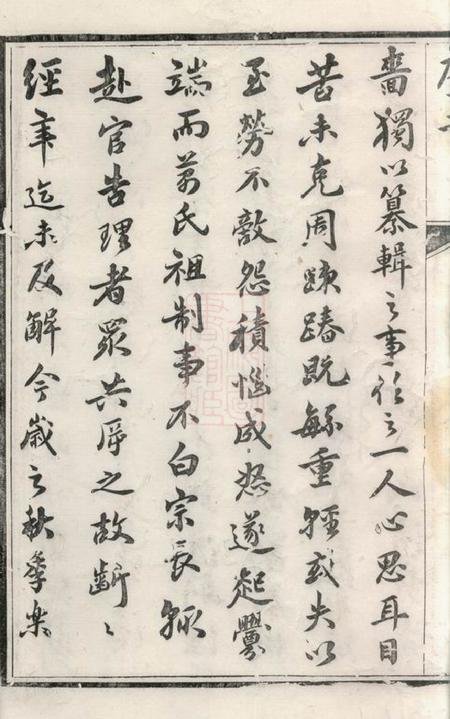 嗇獨以纂輯之事任之一人心思耳目
苦未克周踈蹖既繇重輕或失以
至勞不敵怨積惟成怒遂起釁
端而前氏祖制事不白宗長輒
赴官告理者眾共辱之故齗〻
經年迄未及解今歲之秋季樂